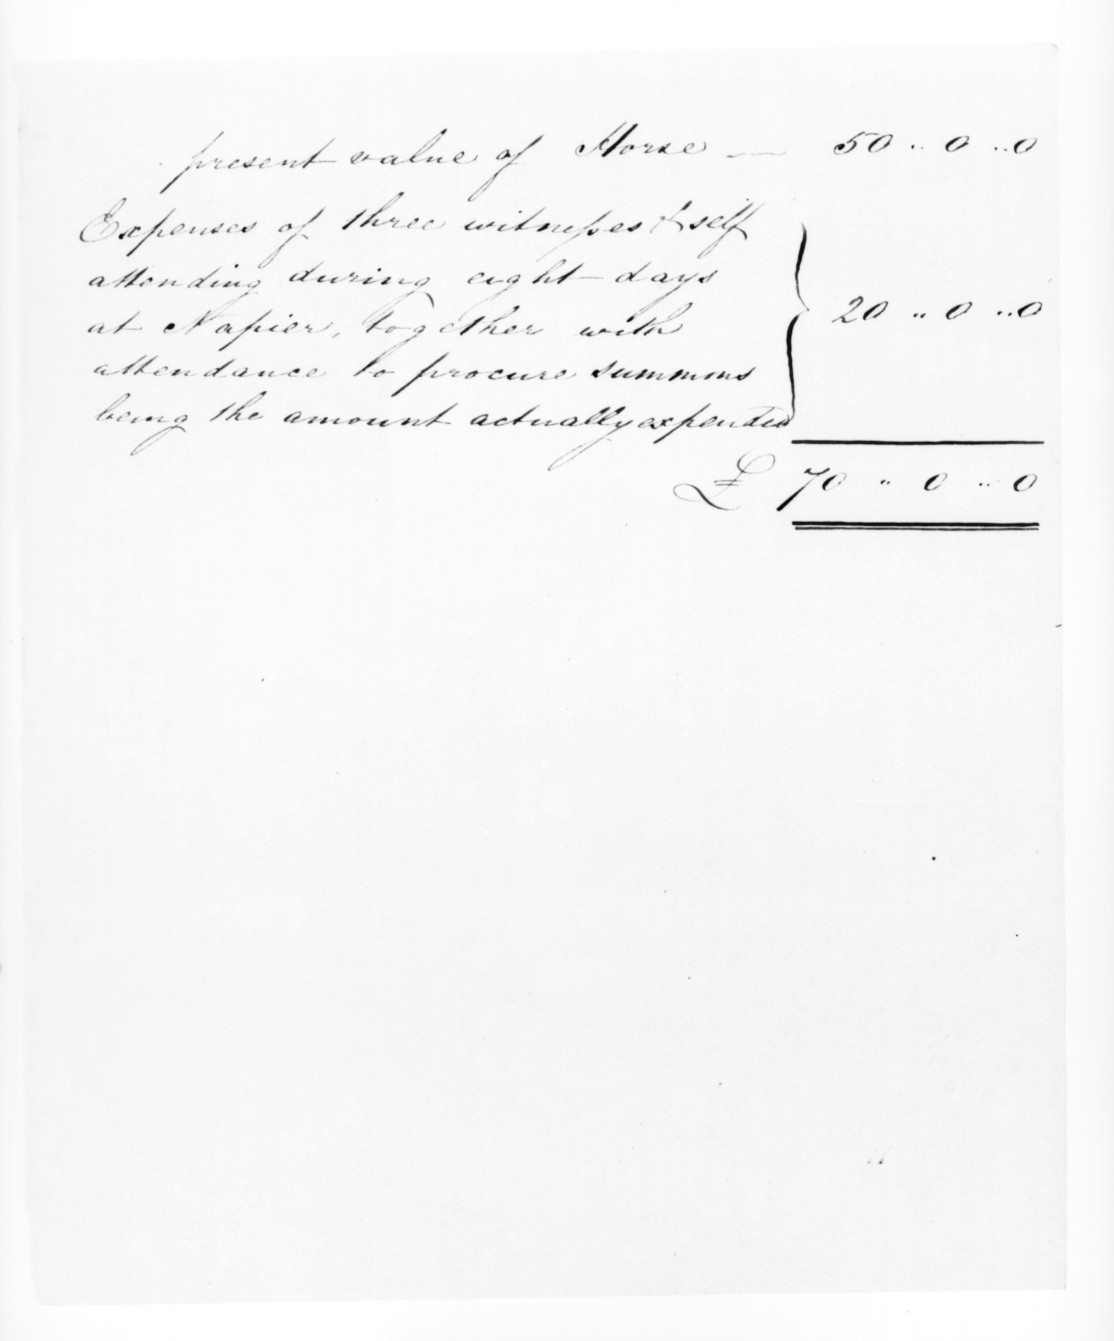 present value of Horse — 50 .. 0 .. 0
Expenses of three witnesses & self
attending during eight days
at Napier, together with 20 .. 0 .. 0
attendance to procure summons
being the amount actually expended
£ 70 .. 0 .. 0